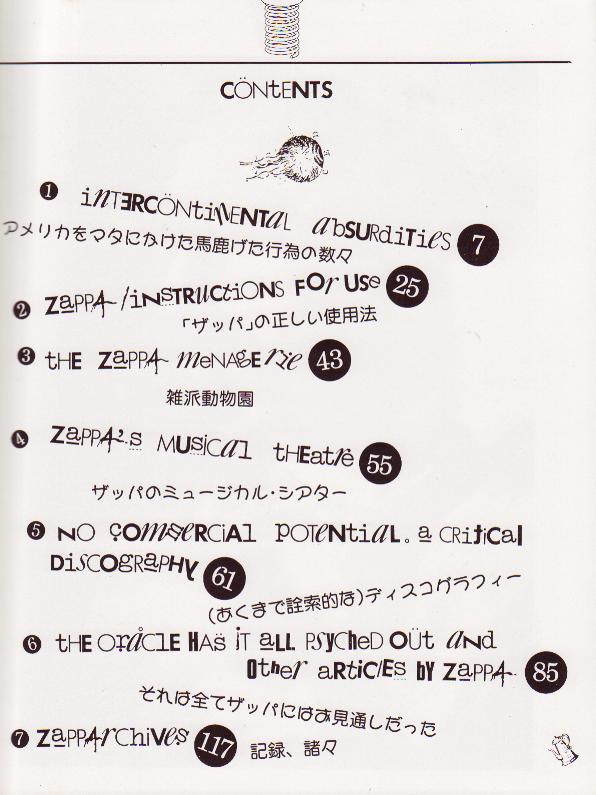 CÖNtENTS
1 iNTERCÖNtiNENTAL AbSURdiTiES 7
アメリカをマタにかけた馬鹿げた行為の数々
2 ZAPPA/iNSTRUCtiONS FOr USe 25
「ザッパ」の正しい使用法
3 tHE ZAPPA meNAgErie 43
雑派動物園
4 ZAPPA'S MUSiCAl tHEatre 55
ザッパのミュージカル・シアター
5 NO COMMERCiAl POTENtiAL. a CRitiCal
DiSCOgRAPHY 61
(あくまで詮索的な)ディスコグラフィー
6 tHE OrACLE HAS iT aLL PSyCheD OÜt ANd
OtherR aRtiClES bY ZAPPA 85
それは全てザッパにはお見通しだった
7 ZAPPArChiVeS 117 記録、諸々